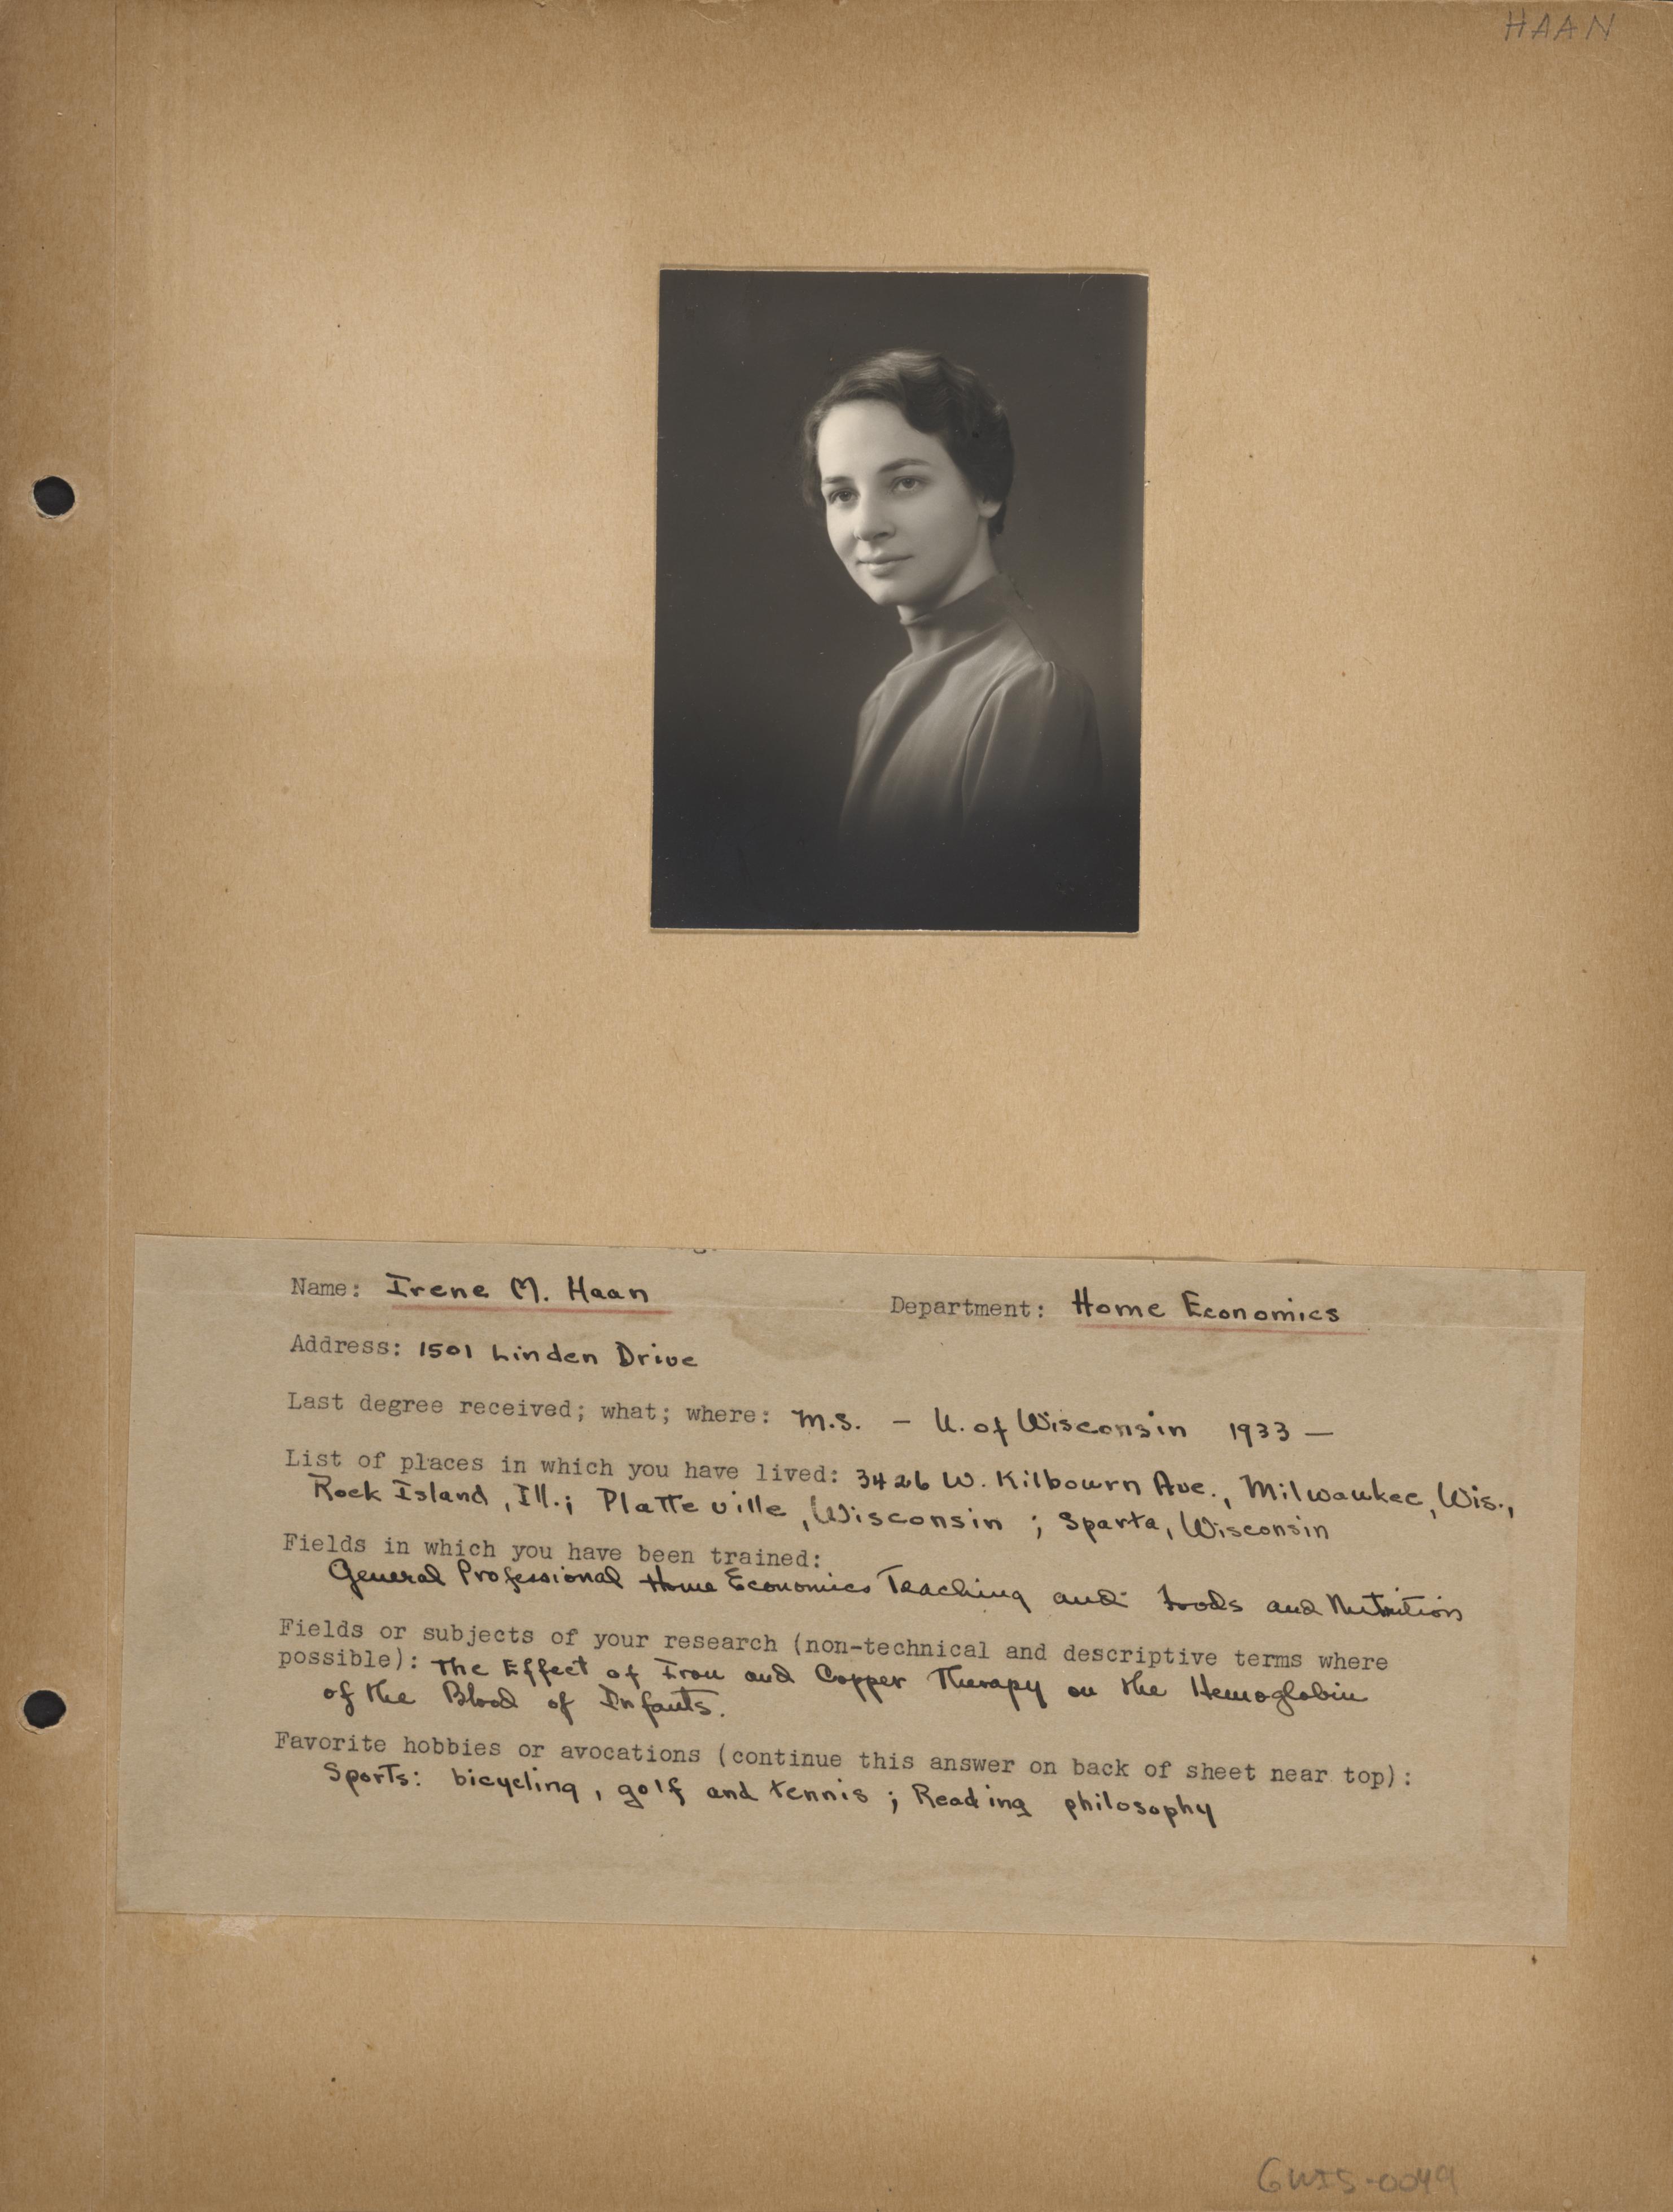 HAAN
Name: Irene M. Haan Department: Home Economics
Address: 1501 Linden Drive
Last degree received; what; where: M.S. - U. of Wisconsin 1933 —
List of places in which you have lived: 3426 W. Kilbourn Ave., Milwaukee, Wis.,
Rock Island, Ill.; Platteville, Wisconsin ; Sparta, Wisconsin
Fields in which you have been trained:
General Professional Home Economics Teaching and Foods and Nutrition
Fields or subjects of your research (non-technical and descriptive terms where
possible): The Effect of Iron and Copper Therapy on the Hemoglobin
of the Blood of Infants.
Favorite hobbies or avocations (continue this answer on back of sheet near top):
Sports: bicycling, golf and tennis ; Reading philosophy
GWIS-0049